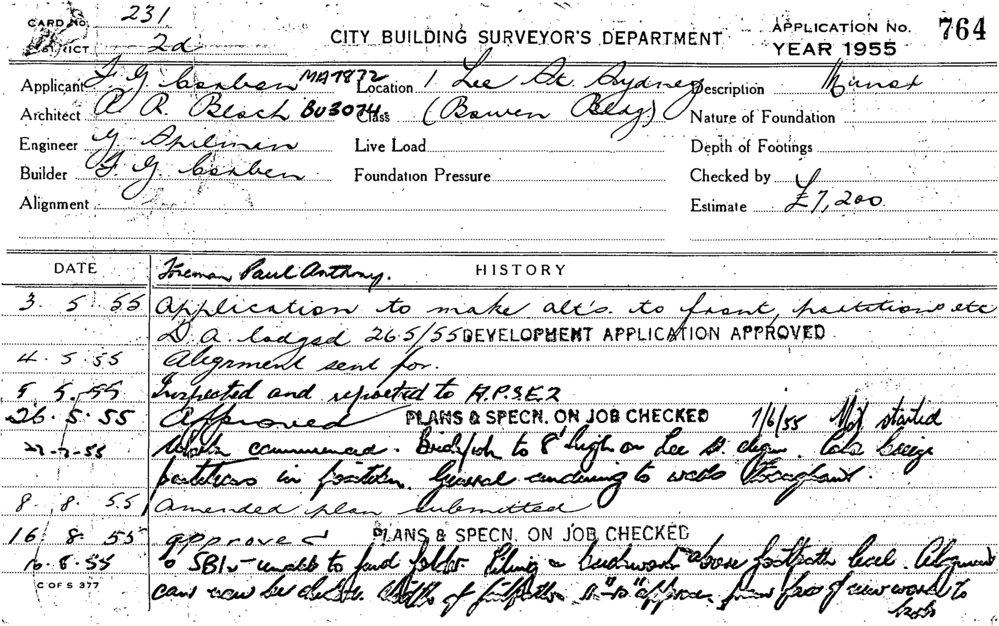 CARD No. 231
DISTRICT 2d
CITY BUILDING SURVEYOR'S DEPARTMENT
APPLICATION No. 764
YEAR 1955
Applicant F G Corben MA7872 Location 1 Lee St. Sydney Description
Architect R. R. Bloch BU3074 Class (Bowen Bldg) Nature of Foundation
Engineer G Spelman Live Load Depth of Footings
Builder F. G Corben Foundation Pressure Checked by
Alignment Estimate £7,200
DATE Foreman Paul Anthony. HISTORY
3. 5. 55 Application to make alt's. to front, partitions etc
D.A. lodged 26.5/55 DEVELOPMENT APPLICATION APPROVED
4. 5. 55 Alignment sent for.
5. 5. 55 Inspected and reported to
26. 5. 55 Approved PLANS & SPECN. ON JOB CHECKED 7/6/55 Not started
22-7-55 Work commenced. to 8' high on Lee St.
partitions in position. General to walls
8. 8. 55 Amended plan submitted
16 8 55 approved PLANS & SPECN. ON JOB CHECKED
16.8.55 to unable to find above footpath level. Alignment
can now be of footpath approx from face of new work to
C OF S 377
kerb